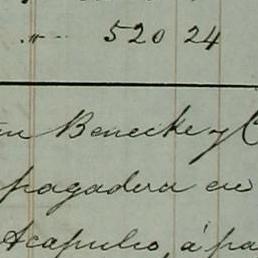 " 520 24
Benecke y C
pagadera en
Acapulco, á pa